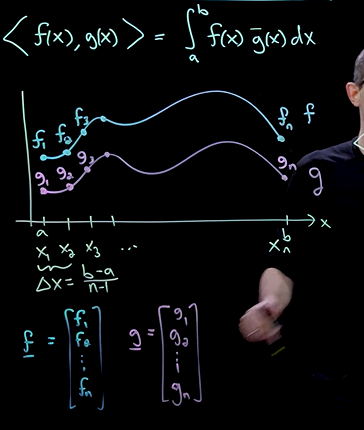 ⟨ f(x), g(x) ⟩ = ∫ₐᵇ f(x) ḡ(x) dx
f₁ f₂ f₃ fₙ f
g₁ g₂ g₃ gₙ g
x
a b
x₁ x₂ x₃ ... xₙ
Δx = (b-a)/(n-1)
f = [f₁ f₂ ⋮ fₙ] g = [g₁ g₂ ⋮ gₙ]